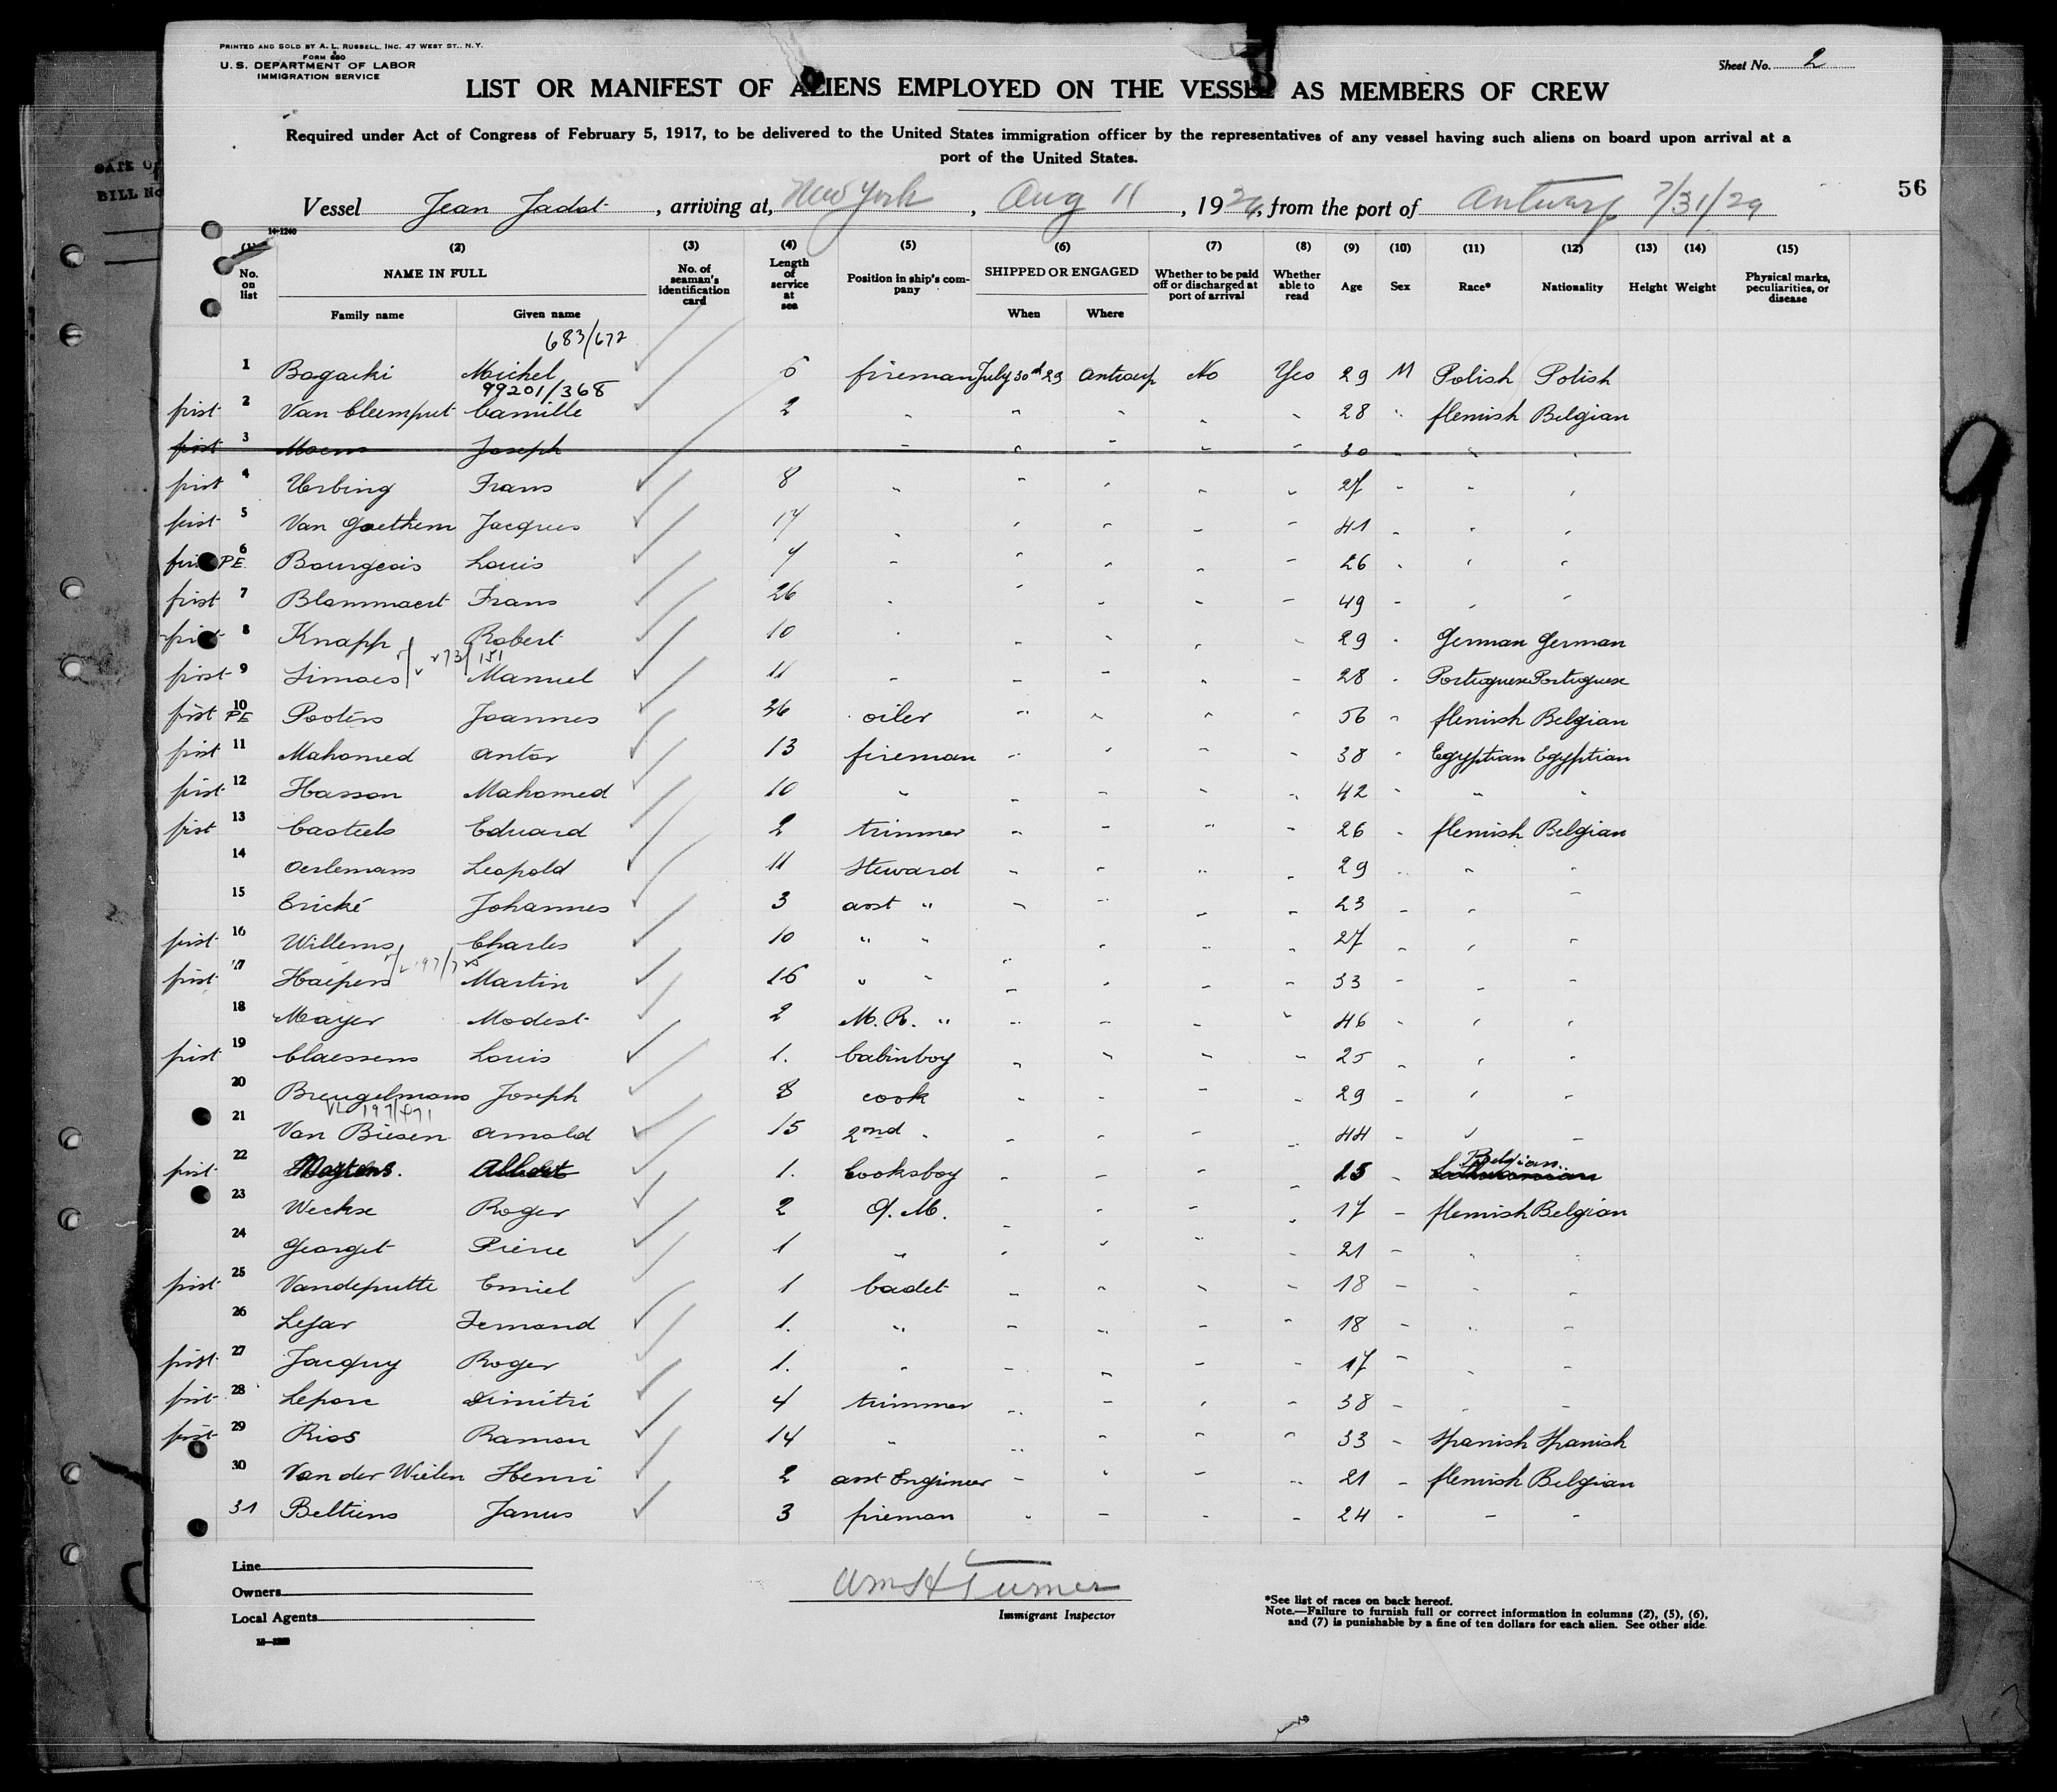 PRINTED AND SOLD BY A. L. RUSSELL, INC. 47 WEST ST., N.Y.
FORM 680
U. S. DEPARTMENT OF LABOR
IMMIGRATION SERVICE
Sheet No. 2
LIST OR MANIFEST OF ALIENS EMPLOYED ON THE VESSEL AS MEMBERS OF CREW
Required under Act of Congress of February 5, 1917, to be delivered to the United States immigration officer by the representatives of any vessel having such aliens on board upon arrival at a
port of the United States.
56
Vessel Jean Jadot, arriving at, New York, Aug 11, 1929, from the port of Antwerp 7/31/29
14-1240
(1) No. on list (2) NAME IN FULL Family name Given name (3) No. of seaman's identification card (4) Length of service at sea (5) Position in ship's company (6) SHIPPED OR ENGAGED When Where (7) Whether to be paid off or discharged at port of arrival (8) Whether able to read (9) Age (10) Sex (11) Race* (12) Nationality (13) Height (14) Weight (15) Physical marks, peculiarities, or disease
683/672
1 Bogacki Michel 5 fireman July 30th 29 Antwerp No Yes 29 M Polish Polish
99201/368
first 2 Van Cleemput Camille 2 " " " " " 28 " flemish Belgian
first 3 Moens Joseph " " " " " 30 " " "
first 4 Verbing Frans 8 " " " " " 27 " " "
first 5 Van Goethem Jacques 17 " " " " " 41 " " "
first PE 6 Bourgeois Louis 7 " " " " 26 " " "
first 7 Blommaert Frans 26 " " " " " 49 " " "
first 8 Knapp Robert 10 " " " " " 29 " German German
273/151
first 9 Simoes Manuel 11 " " " " " 28 " Portuguese Portuguese
first PE 10 Pooters Joannes 36 oiler " " " " 56 " flemish Belgian
first 11 Mahomed Antar 13 fireman " " " " 38 " Egyptian Egyptian
first 12 Hasson Mahomed 10 " " " " " 42 " " "
first 13 Casteels Eduard 2 trimmer " " " " 26 " flemish Belgian
14 Oerlemans Leopold 11 Steward " " " " 29 " " "
15 Erické Johannes 3 asst " " " " " 23 " " "
first 16 Willems Charles 10 " " " " " 27 " " "
first 17 Haepers Martin 16 " " " " " " 33 " " "
18 Mayer Modest 2 M. R. " " " " " 46 " " "
first 19 Claessens Louis 1. Cabinboy " " " " 25 " " "
20 Breugelmans Joseph 8 cook " " " " 29 " " "
VL 197/471
21 Van Biesen Arnold 15 2nd " " " " " 44 " " "
first 22 Martens. Albert 1. Cooksboy " " " " 25 " Belgian
23 Weckse Roger 2 Q. M. " " " " 17 " flemish Belgian
24 Georget Pierre 1 " " " " " 21 " " "
first 25 Vandeputte Emiel 1 Cadet " " " " 18 " " "
26 Lejar Fernand 1. " " " " " 18 " " "
first 27 Jacquy Roger 1. " " " " " 17 " " "
first 28 Lepore Dimitri 4 trimmer " " " " 38 " " "
first 29 Rios Ramon 14 " " " " " 33 " Spanish Spanish
30 Van der Wielen Henri 2 asst Engineer " " " " 21 " flemish Belgian
31 Beltiens Janus 3 fireman " " " " 24 " " "
Line
Owners
Local Agents
Wm H Turner
Immigrant Inspector
*See list of races on back hereof.
Note.—Failure to furnish full or correct information in columns (2), (5), (6),
and (7) is punishable by a fine of ten dollars for each alien. See other side.
9